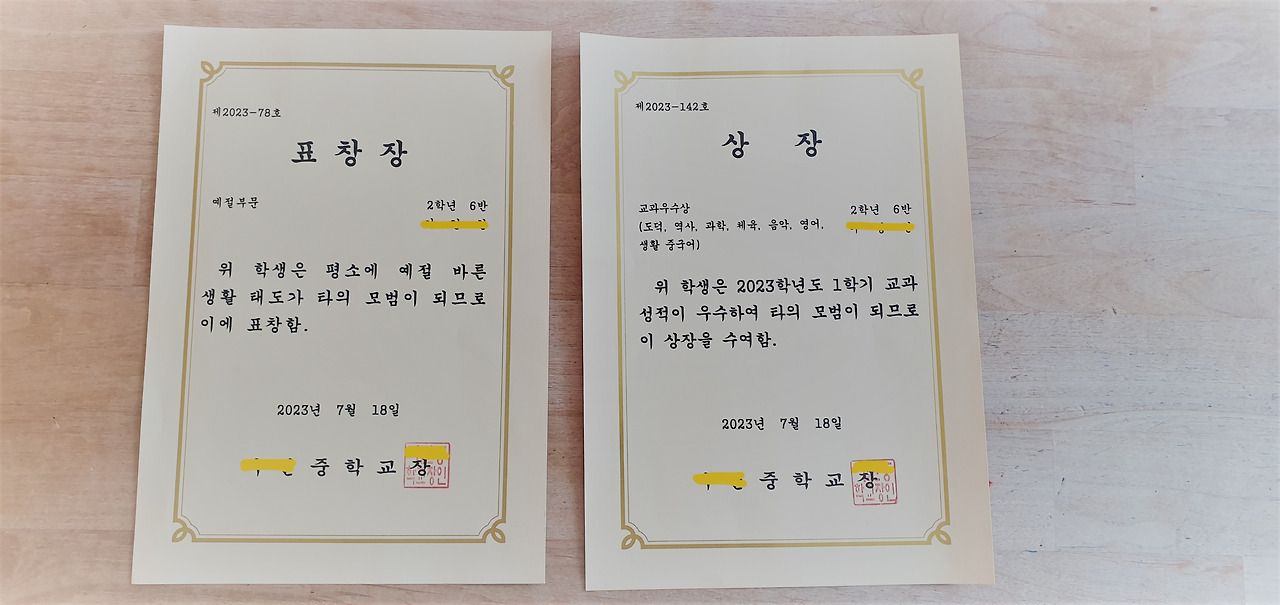 제2023-78호
표 창 장
예절부문
2학년 6반
위 학생은 평소에 예절 바른
생활 태도가 타의 모범이 되므로
이에 표창함.
2023년 7월 18일
중 학 교 장
제2023-142호
상 장
교과우수상
2학년 6반
(도덕, 역사, 과학, 체육, 음악, 영어,
생활 중국어)
위 학생은 2023학년도 1학기 교과
성적이 우수하여 타의 모범이 되므로
이 상장을 수여함.
2023년 7월 18일
중 학 교 장